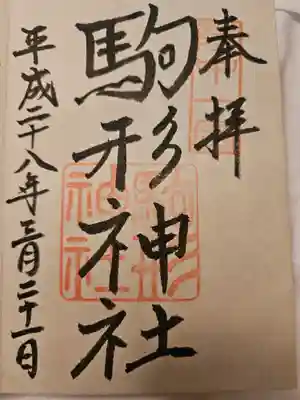 奉拝
駒形神社
平成二十八年三月二十一日
駒形
神社